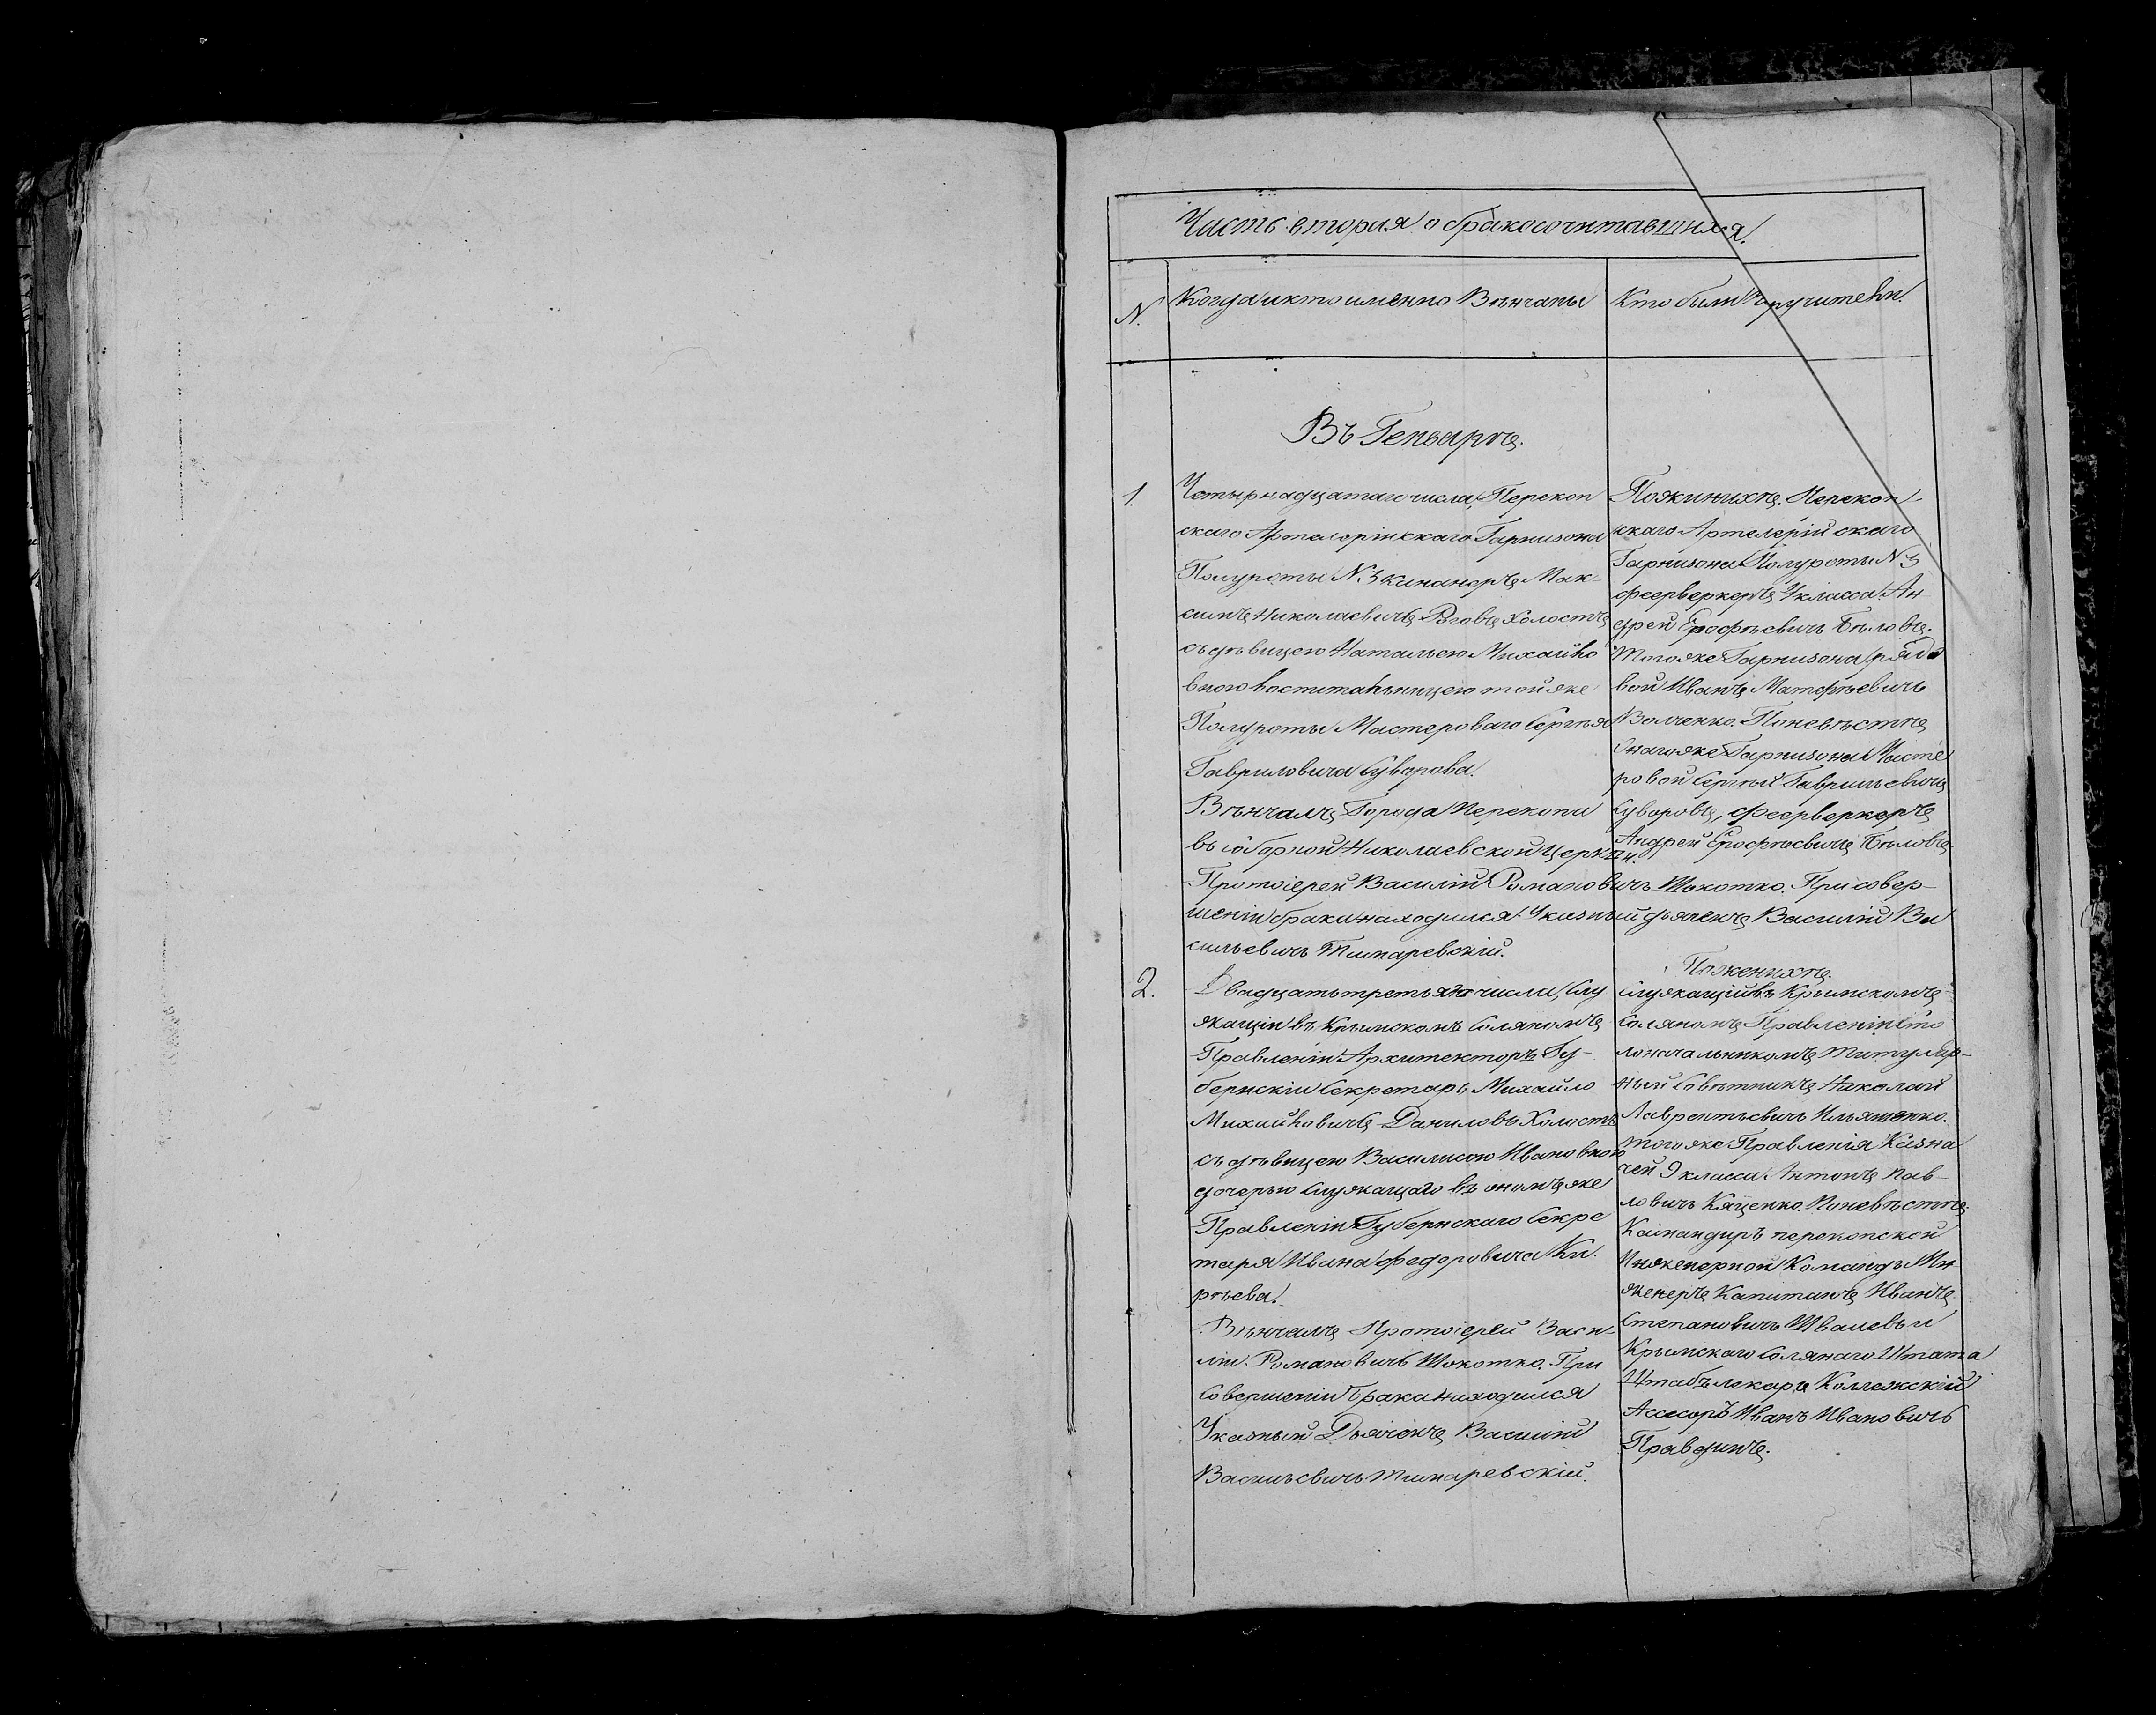 Часть вторая о бракосочитавшихся.
N.
Когда и кто именно Венчаны
Кто были Поручители.
Въ Генварѣ.
1.
Четырнадцатаго числа, Перекоп
скаго Артелерінскаго Гарнизона
Полуроты N. 3 кананеръ Мак-
симъ Николаевичъ Холостъ
съ дѣвицею Натальею Михайло
вною воспитанницею той же
Полуроты Мастероваго Сергѣя
Гавриловича Суворова.
Вѣнчалъ Города Перекопа
въ соборной Николаевской церкви
Протоіерей Василій Романовичъ Шокотко. При совер-
шеніи брака находился Указный дьячекъ Василій Ва
сильевичъ Тинаревскій.
Пожинихѣ. Перекоп-
скаго Артелерійскаго
Гарнизона Полуроты N 3
феерверкеръ 4 класса Ан
дрей Ерофѣевичъ Бѣловъ.
Тогоже Гарнизона рядо
вой Иванъ Матфѣевичъ
Волченко. Поневѣстѣ
Онагоже Гарнизона Масте
ровой Сергѣй Гаврильевичъ
Суворовъ, Феерверкеръ
Андрей Ерофѣевичъ Бѣловъ.
2.
Двадцатьтретьяго числа, Слу
жащій въ Крымскомъ Соляномъ
Правленіи Архитекторъ Гу-
бернскій Секретарь Михайло
Михайловичъ Даниловъ Холостъ
съ дѣвицею Василисою Ивановною
дочерью Служащаго въ ономъ же
Правленіи Губернскаго Секре
таря Ивана Федоровича Ки
рѣева.
Вѣнчалъ Протоіерей Васи-
лій Романовичъ Шокотко. При
Совершеніи Брака находился
Указный Дьячекъ Василій
Васильевичъ Тинаревскій.
Поженихѣ.
Служащій въ Крымскомъ
Соляномъ Правленіи Сто
лоначальникомъ Титуляр-
ный Совѣтникъ Николай
Лаврентьевичъ Ильяшенко.
тогоже Правленія Казна
чей 9 класса Антонъ Пав-
ловичъ Кяценко. Поневѣстѣ
Командиръ перекопской
Инженерной Команды Ин
женеръ Капитанъ Иванъ
Степановичъ Швалевъ и
Крымскаго Солянаго Штата
Штабъ лекарь Коллежскій
Ассесоръ Иванъ Ивановичъ
Праведичъ.